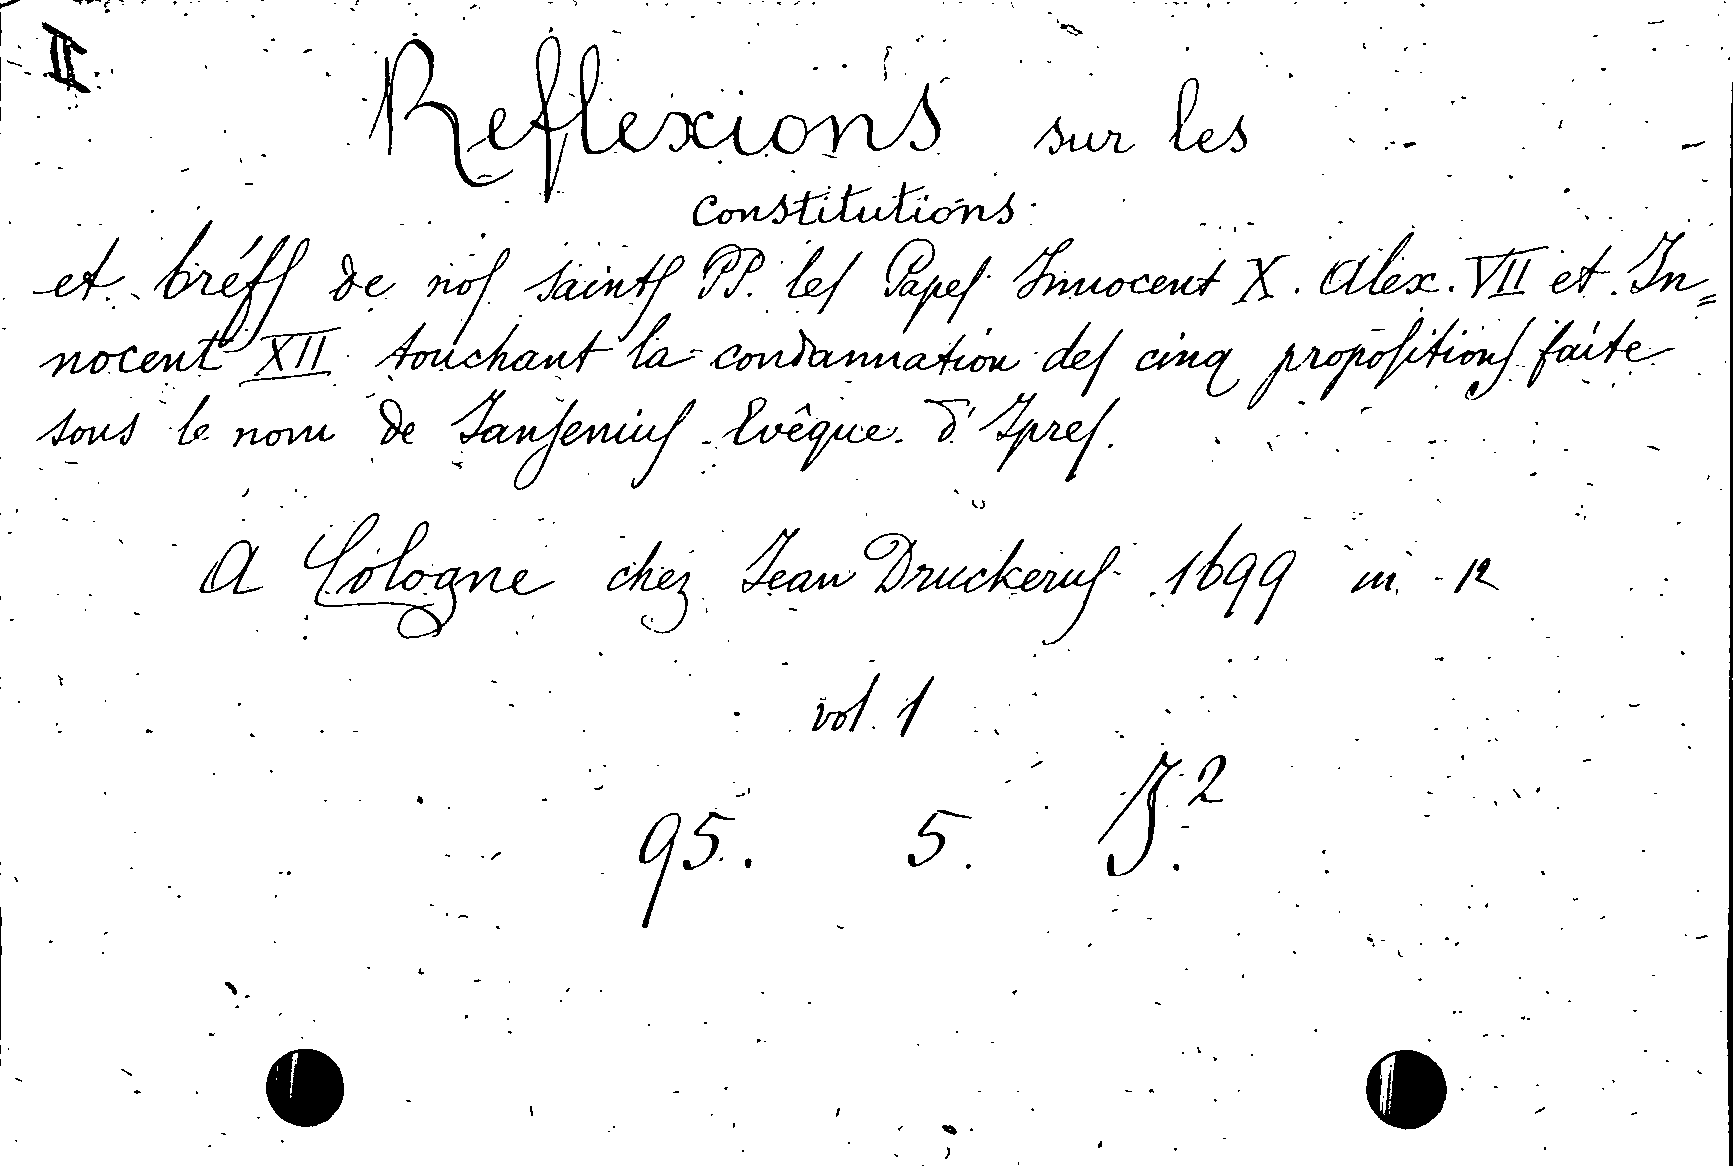 II
Reflexions sur les
constitutions
et bréfs de nos saints PP. les Papes Innocent X. Alex. VII et In=
nocent XII touchant la condannation des cinq propositions faite
sous le nom de Jansenius Evêque d'Ipres.
A Cologne chez Jean Druckerus 1699 in - 12
vol. 1
95. 5. J.2